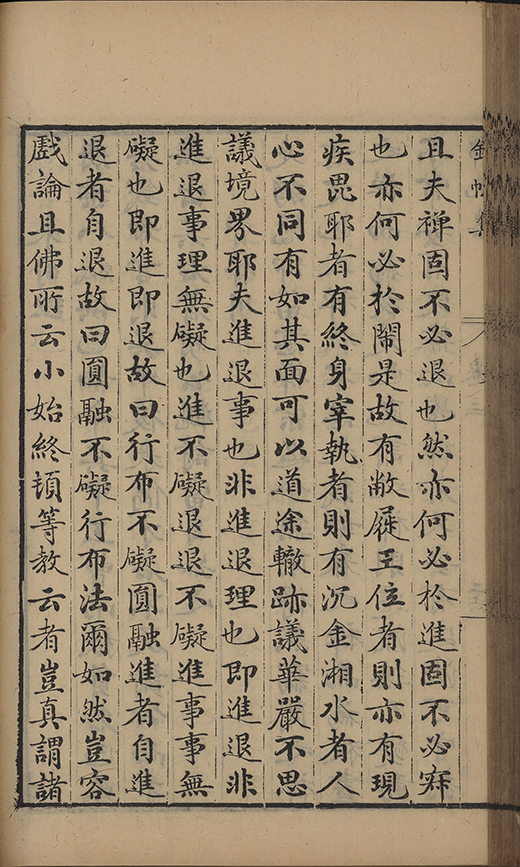 且夫禅固不必退也然亦何必於進固不必寂
也亦何必於閙是故有敝屣王位者則亦有現
疾毘耶者有終身宰執者則有沉金湘水者人
心不同有如其面可以道途轍跡議華嚴不思
議境界耶夫進退事也非進退理也即進退非
進退事理無礙也進不礙退退不礙進事事無
礙也即進即退故曰行布不礙圓融進者自進
退者自退故曰圓融不礙行布法爾如然豈容
戲論且佛所云小始終頓等教云者豈真謂諸